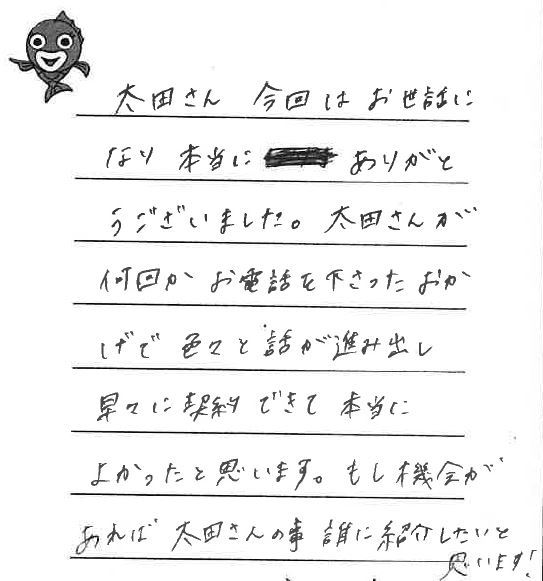 太田さん 今回は お世話に
なり 本当に ありがと
うございました。太田さんが
何回か お電話を下さった おか
げで 色々と 話が進み出し
早々に契約 できて 本当に
よかったと思います。もし機会が
あれば 太田さんの事 誰に紹介したいと
思います!